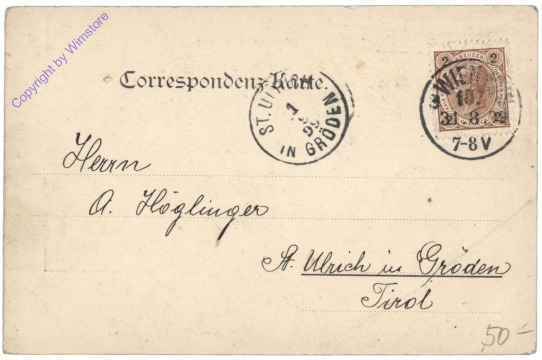 Copyright by Wimstore
Correspondenz-Karte.
2 KREUZER 2
WIEN
31.8.
7-8V
ST. UL
1
99
IN GRÖDEN
Herrn
A. Höglinger
St. Ulrich in Gröden
Tirol
50